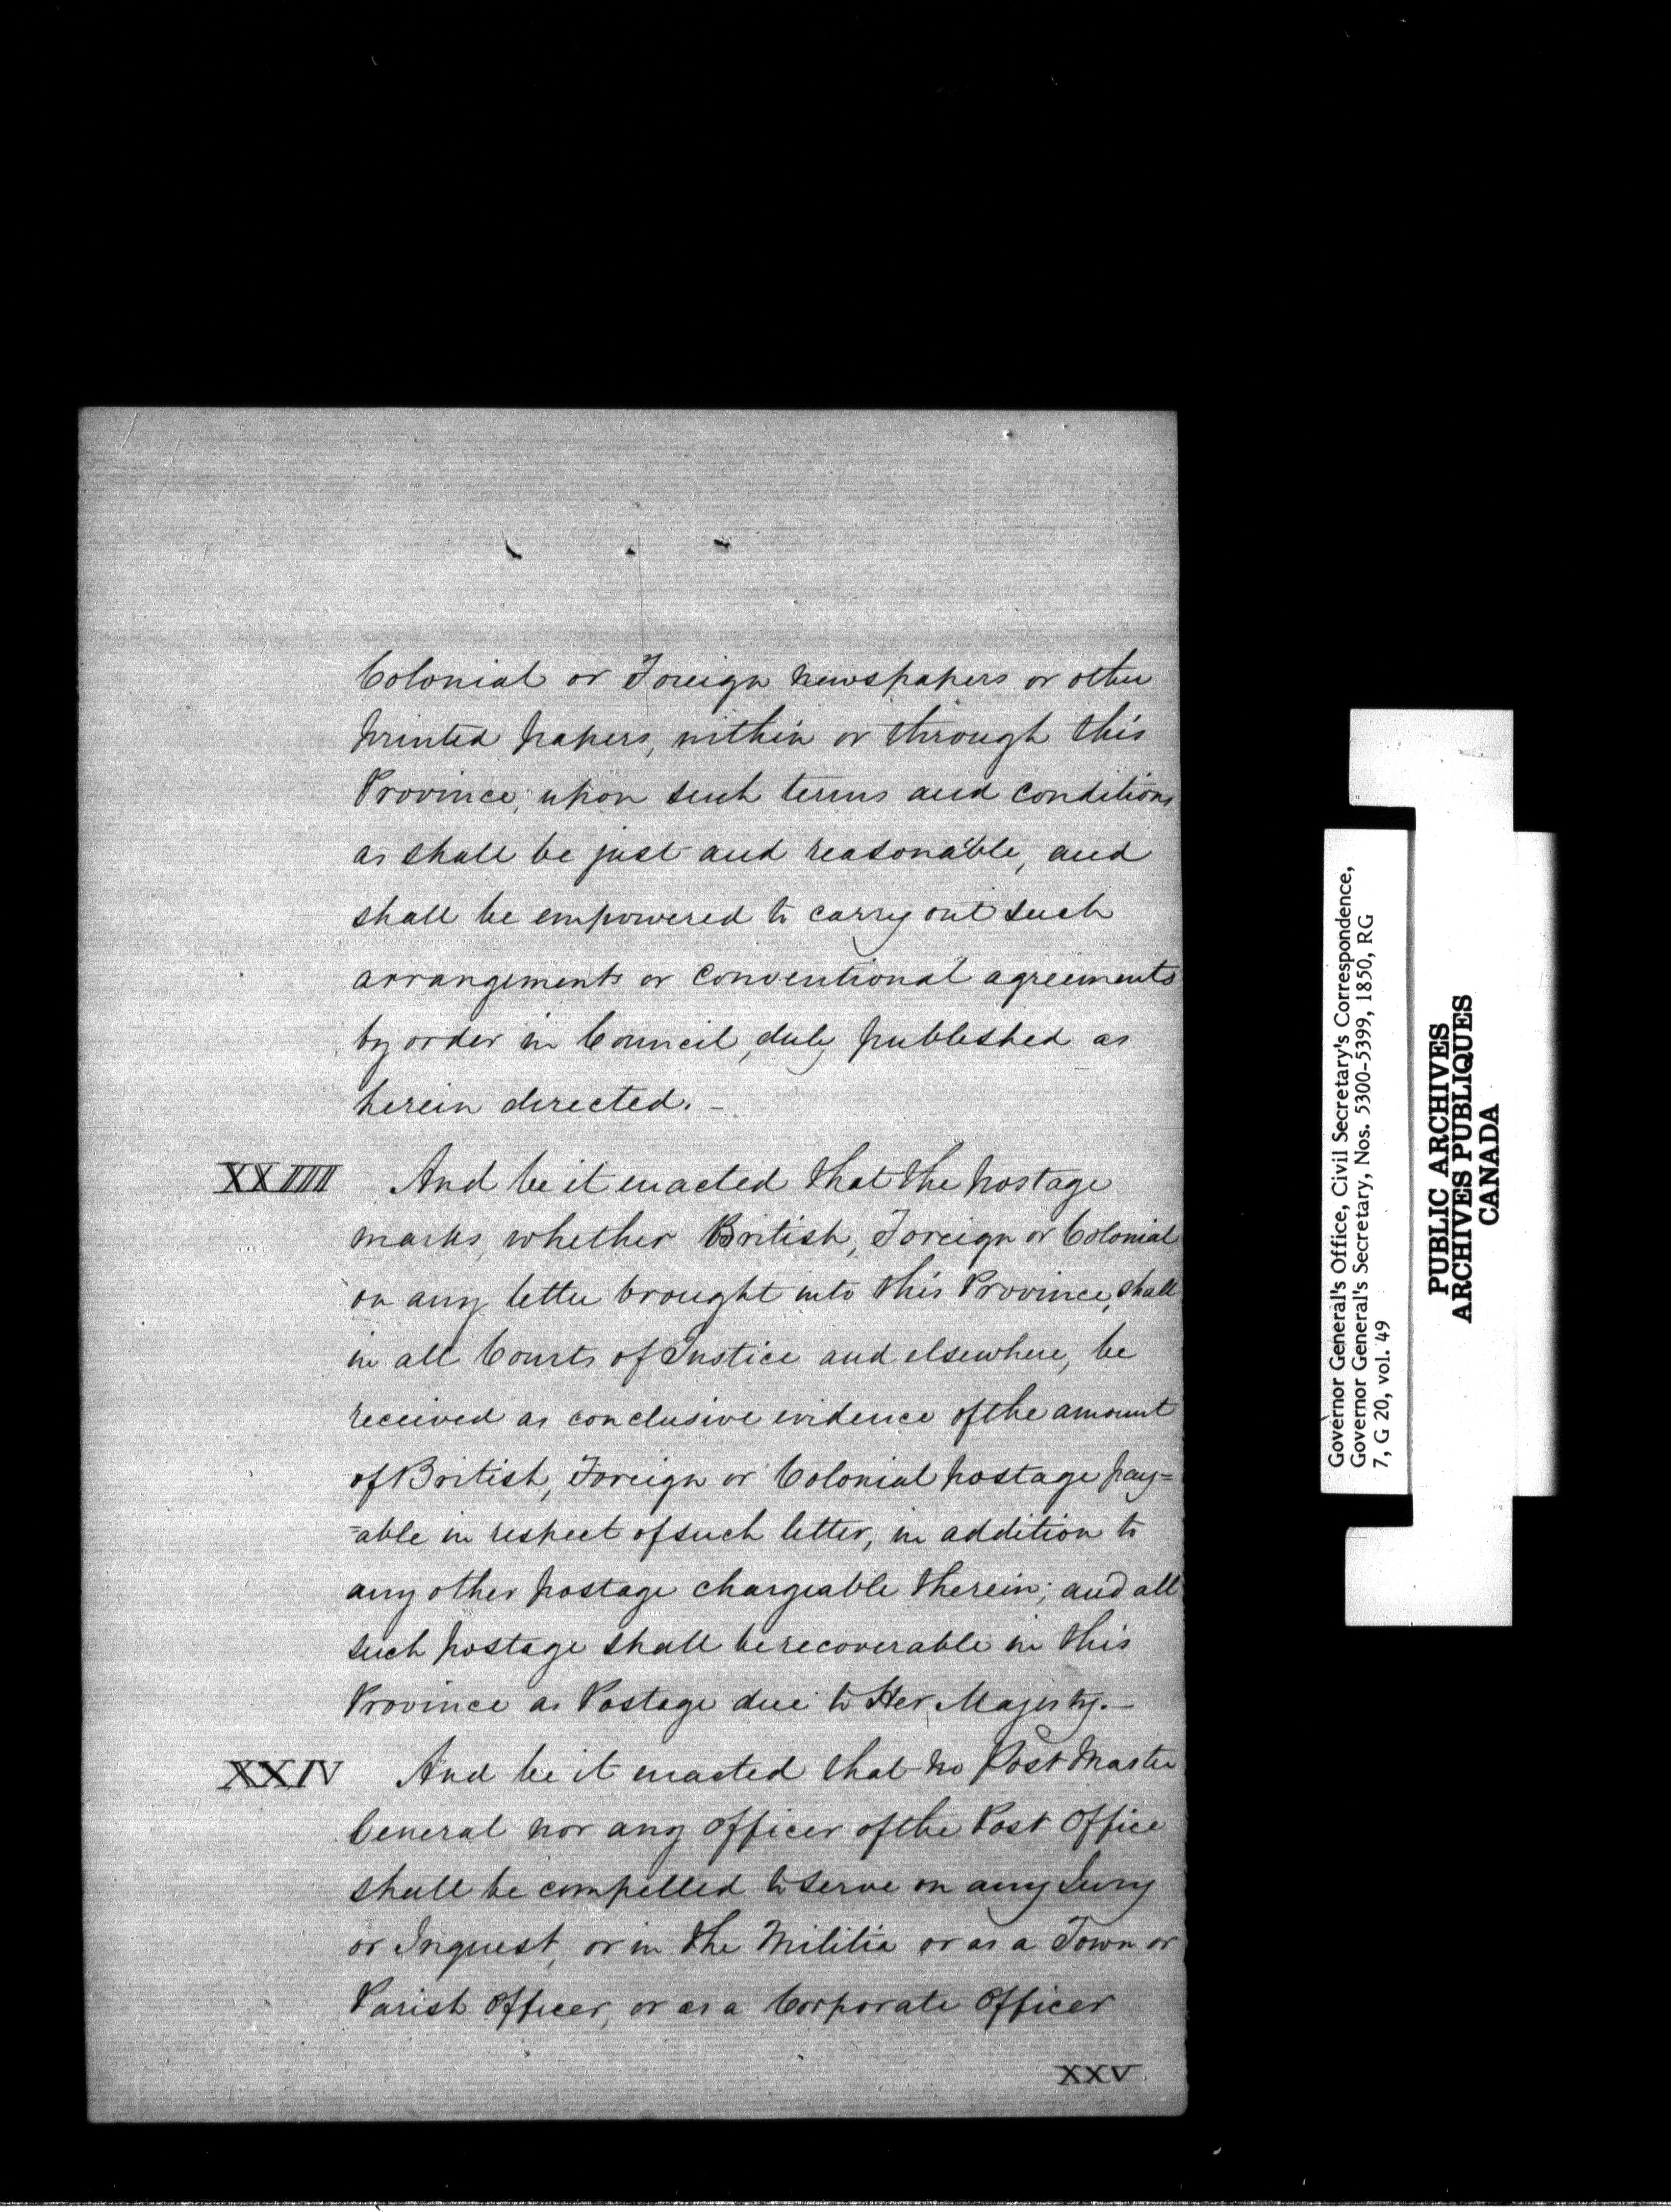 Colonial or Foreign newspapers or other
printed papers, within or through this
Province, upon such terms and conditions
as shall be just and reasonable, and
shall be empowered to carry out such
arrangements or conventional agreements
by order in Council, duly published as
herein directed. -
XXIII And be it enacted that the postage
marks, whether British, Foreign or Colonial
on any letter brought into this Province, shall
in all Courts of Justice and elsewhere, be
received as conclusive evidence of the amount
of British, Foreign or Colonial postage pay=
=able in respect of such letter, in addition to
any other postage chargeable therein; and all
such postage shall be recoverable in this
Province as Postage due to Her Majesty. -
XXIV And be it enacted that no Post Master
General nor any officer of the Post Office
shall be compelled to serve on any Jury
or Inquest, or in the Militia or as a Town or
Parish Officer, or as a Corporate Officer
XXV
Governor General's Office, Civil Secretary's Correspondence,
Governor General's Secretary, Nos. 5300-5399, 1850, RG
7, G 20, vol. 49
PUBLIC ARCHIVES
ARCHIVES PUBLIQUES
CANADA